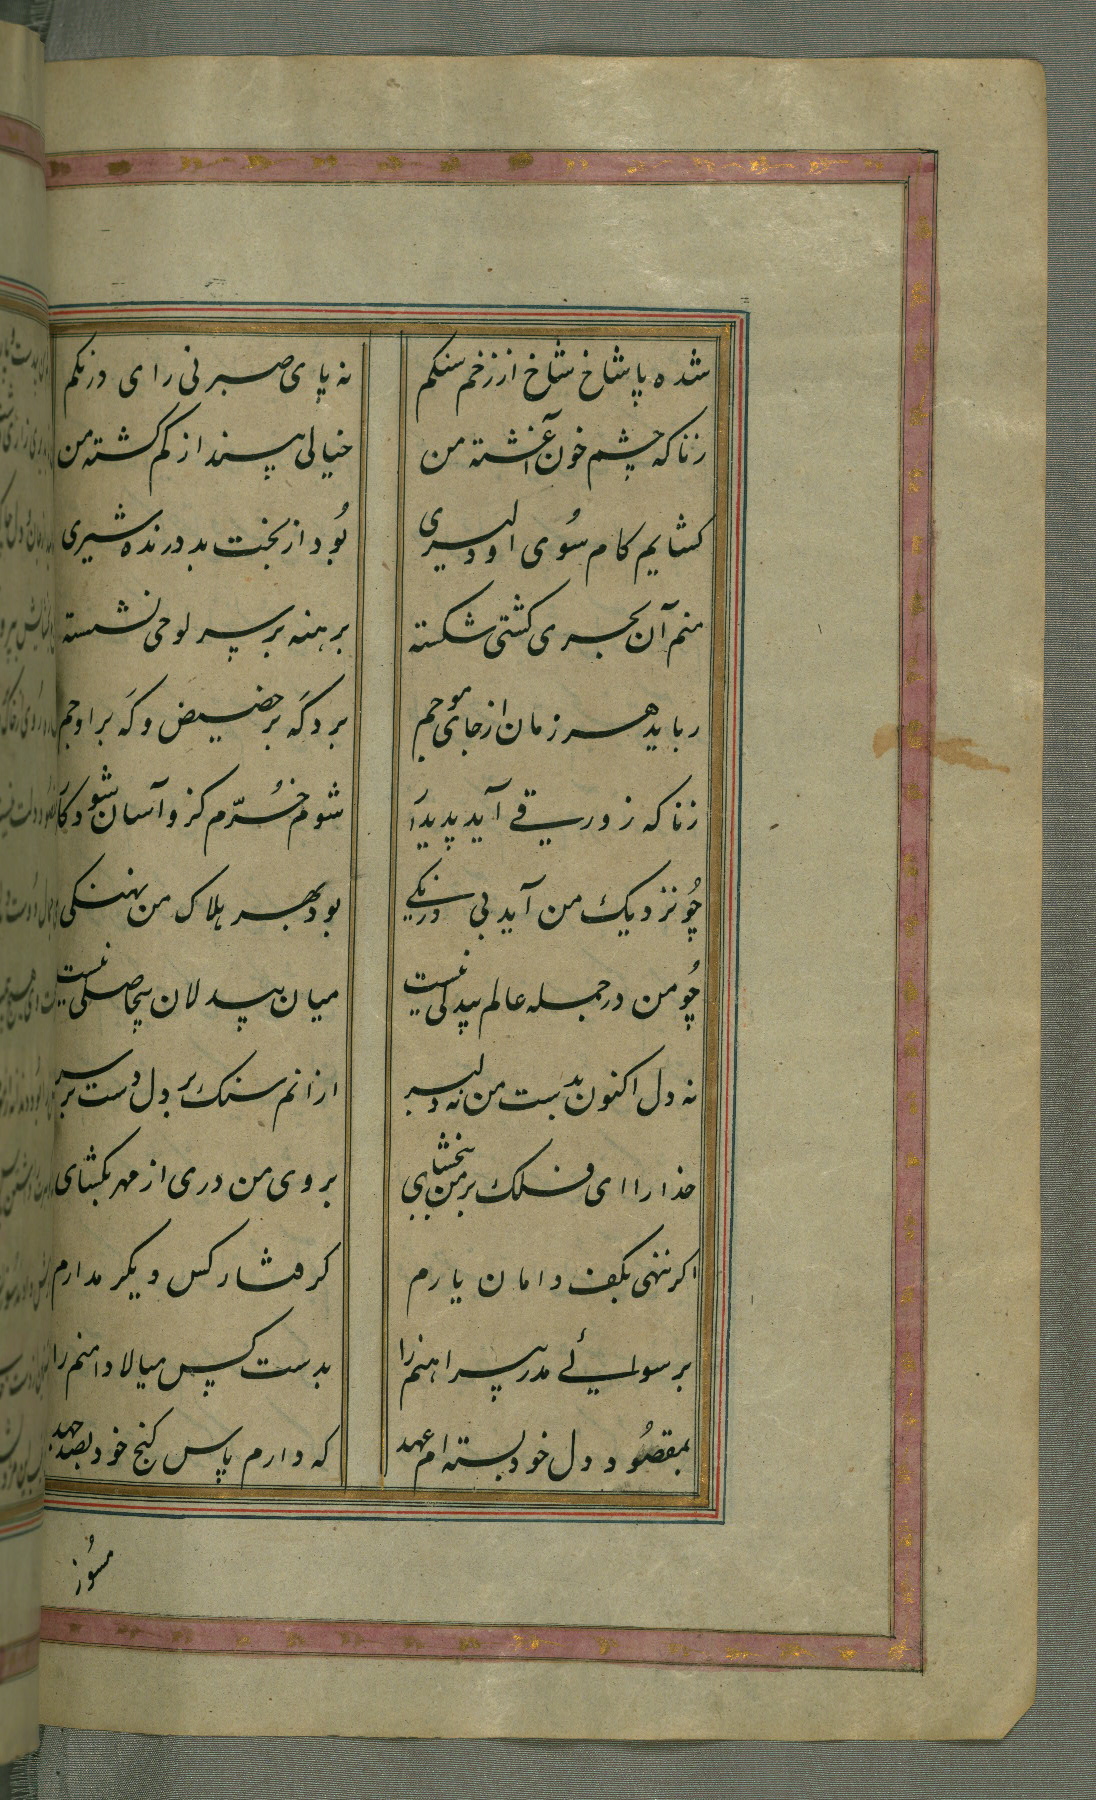 شده پا شاخ شاخ از زخم سنکم نه پای صبر نی رای درنکم
زنا که چشم خون آغشته من خیالی بیند از کم کشته من
کشایم کام سُوی او دلیری بُود از بخت بد درنده شیری
منم آن بحری کشتی شکسته برهنه بر سر لوحی نشسته
رباید هر زمان از جای موجم برد کَه بر حضیض و کَه بر اوجم
زنا که زورقے آید پدیدار شوم خُرّم کزو آسان شود کار
چُو نزدیک من آید بی درنکے بود بهر هلاک من نهنکی
چُو من در جمله عالم بیدلی نیست میان بیدلان بیحاصلی نیست
نه دل اکنون بدست من نه دلبر از انم سنک بر دل دست بر سر
خدارا ای فلک بر من ببخشای بروی من دری از مهر بکشای
اکر ننهی بکف دامان یارم کرفتار کس دیکر مدارم
برسوائے مدر پیراهنم را بدست کس میالا دامنم را
بمقصُود دل خود بسته ام عهد که دارم پاس کنج خود بصد جهد